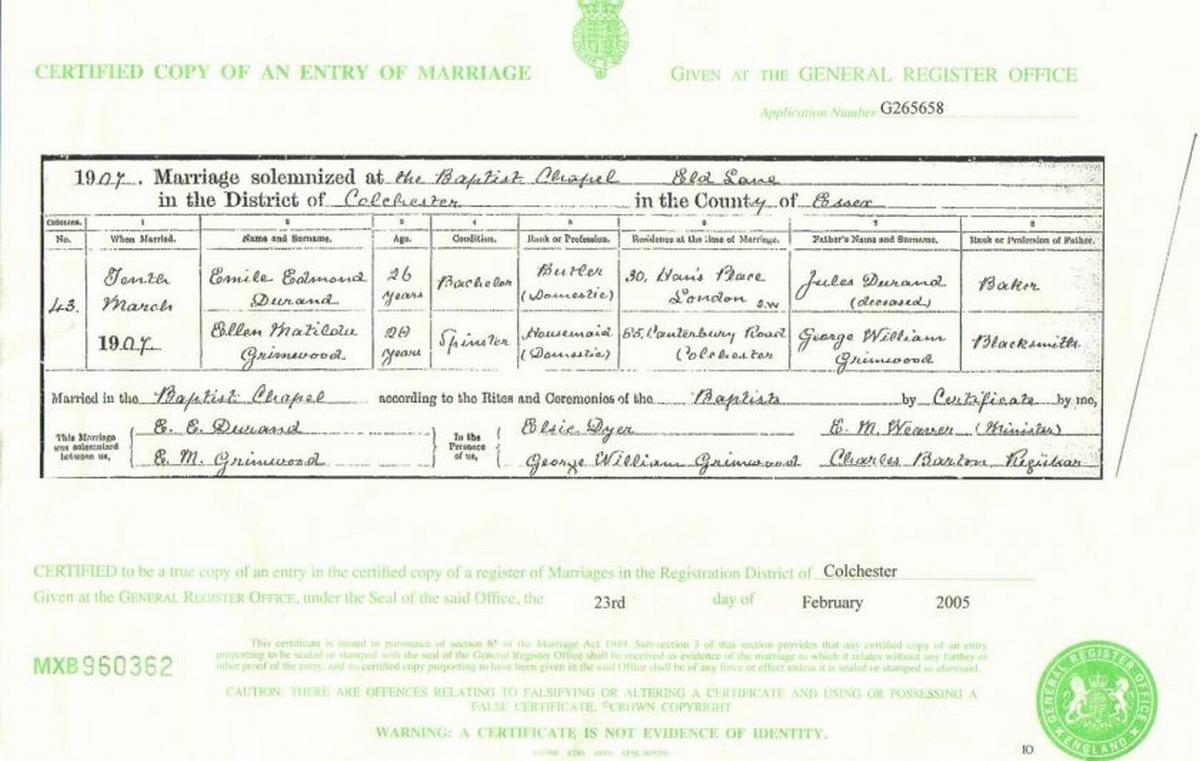 CERTIFIED COPY OF AN ENTRY OF MARRIAGE
GIVEN AT THE GENERAL REGISTER OFFICE
Application Number G265658
1907. Marriage solemnized at the Baptist Chapel Eld Lane
in the District of Colchester in the County of Essex
Columns. 1 2 3 4 5 6 7 8
No. When Married. Name and Surname. Age. Condition. Rank or Profession. Residence at the time of Marriage. Father's Name and Surname. Rank or Profession of Father.
43. Tenth March 1907.
Emile Edmond Durand 26 years Bachelor Butler (Domestic) 30, Hans Place London S.W Jules Durand (deceased) Baker
Ellen Matilda Grimwood years Spinster Housemaid (Domestic) 65, Canterbury Road Colchester George William Grimwood Blacksmith
Married in the Baptist Chapel according to the Rites and Ceremonies of the Baptists by Certificate by me,
This Marriage was solemnized between us,
E. E. Durand
E. M. Grimwood
In the Presence of us,
Elsie Dyer
George William Grimwood
E. M. Weaver (Minister)
Charles Barton Registrar
CERTIFIED to be a true copy of an entry in the certified copy of a register of Marriages in the Registration District of Colchester
Given at the GENERAL REGISTER OFFICE, under the Seal of the said Office, the 23rd day of February 2005
MXB 960362
This certificate is issued in pursuance of section 65 of the Marriage Act 1949. Sub-section 3 of that section provides that any certified copy of an entry
purporting to be sealed or stamped with the seal of the General Register Office shall be received as evidence of the marriage to which it relates without any further or
other proof of the entry, and no certified copy purporting to have been given in the said Office shall be of any force or effect unless it is sealed or stamped as aforesaid.
CAUTION: THERE ARE OFFENCES RELATING TO FALSIFYING OR ALTERING A CERTIFICATE AND USING OR POSSESSING A
FALSE CERTIFICATE. ©CROWN COPYRIGHT
WARNING: A CERTIFICATE IS NOT EVIDENCE OF IDENTITY.
GENERAL REGISTER OFFICE
ENGLAND
IO